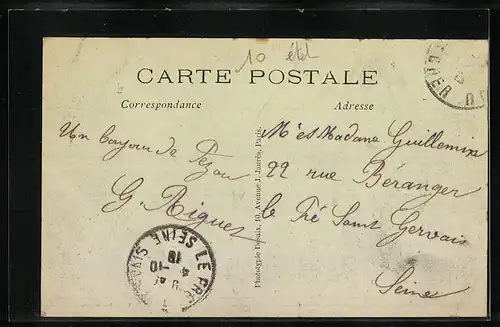 10 été
CARTE POSTALE
Correspondance
Adresse
Un bonjour de
G. Riques
Phototype Desaix, 10, Avenue J. Jaurès, Paris.
M et Madame Guillemin
22 rue Béranger
le Pré Saint Gervais
Seine
LE PRÉ
SEINE
4-10
18